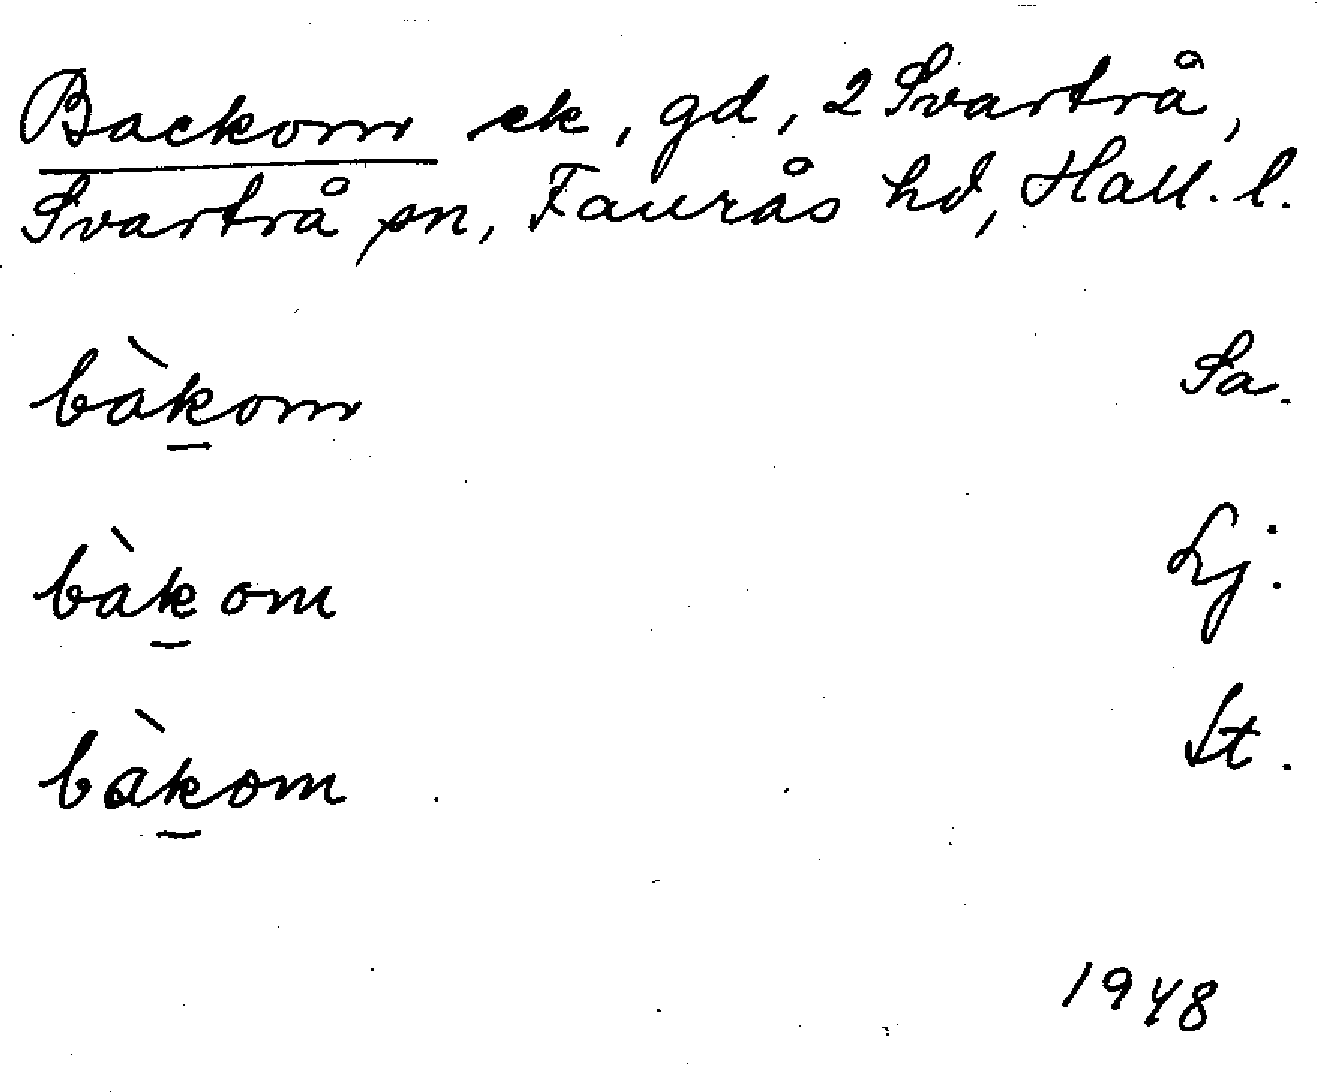 Backom ek, gd, 2 Svartrå,
Svartrå sn, Faurås hd, Hall. l.
bàk̲om Sa.
bàk̲om Lj.
bàk̲om St.
1948